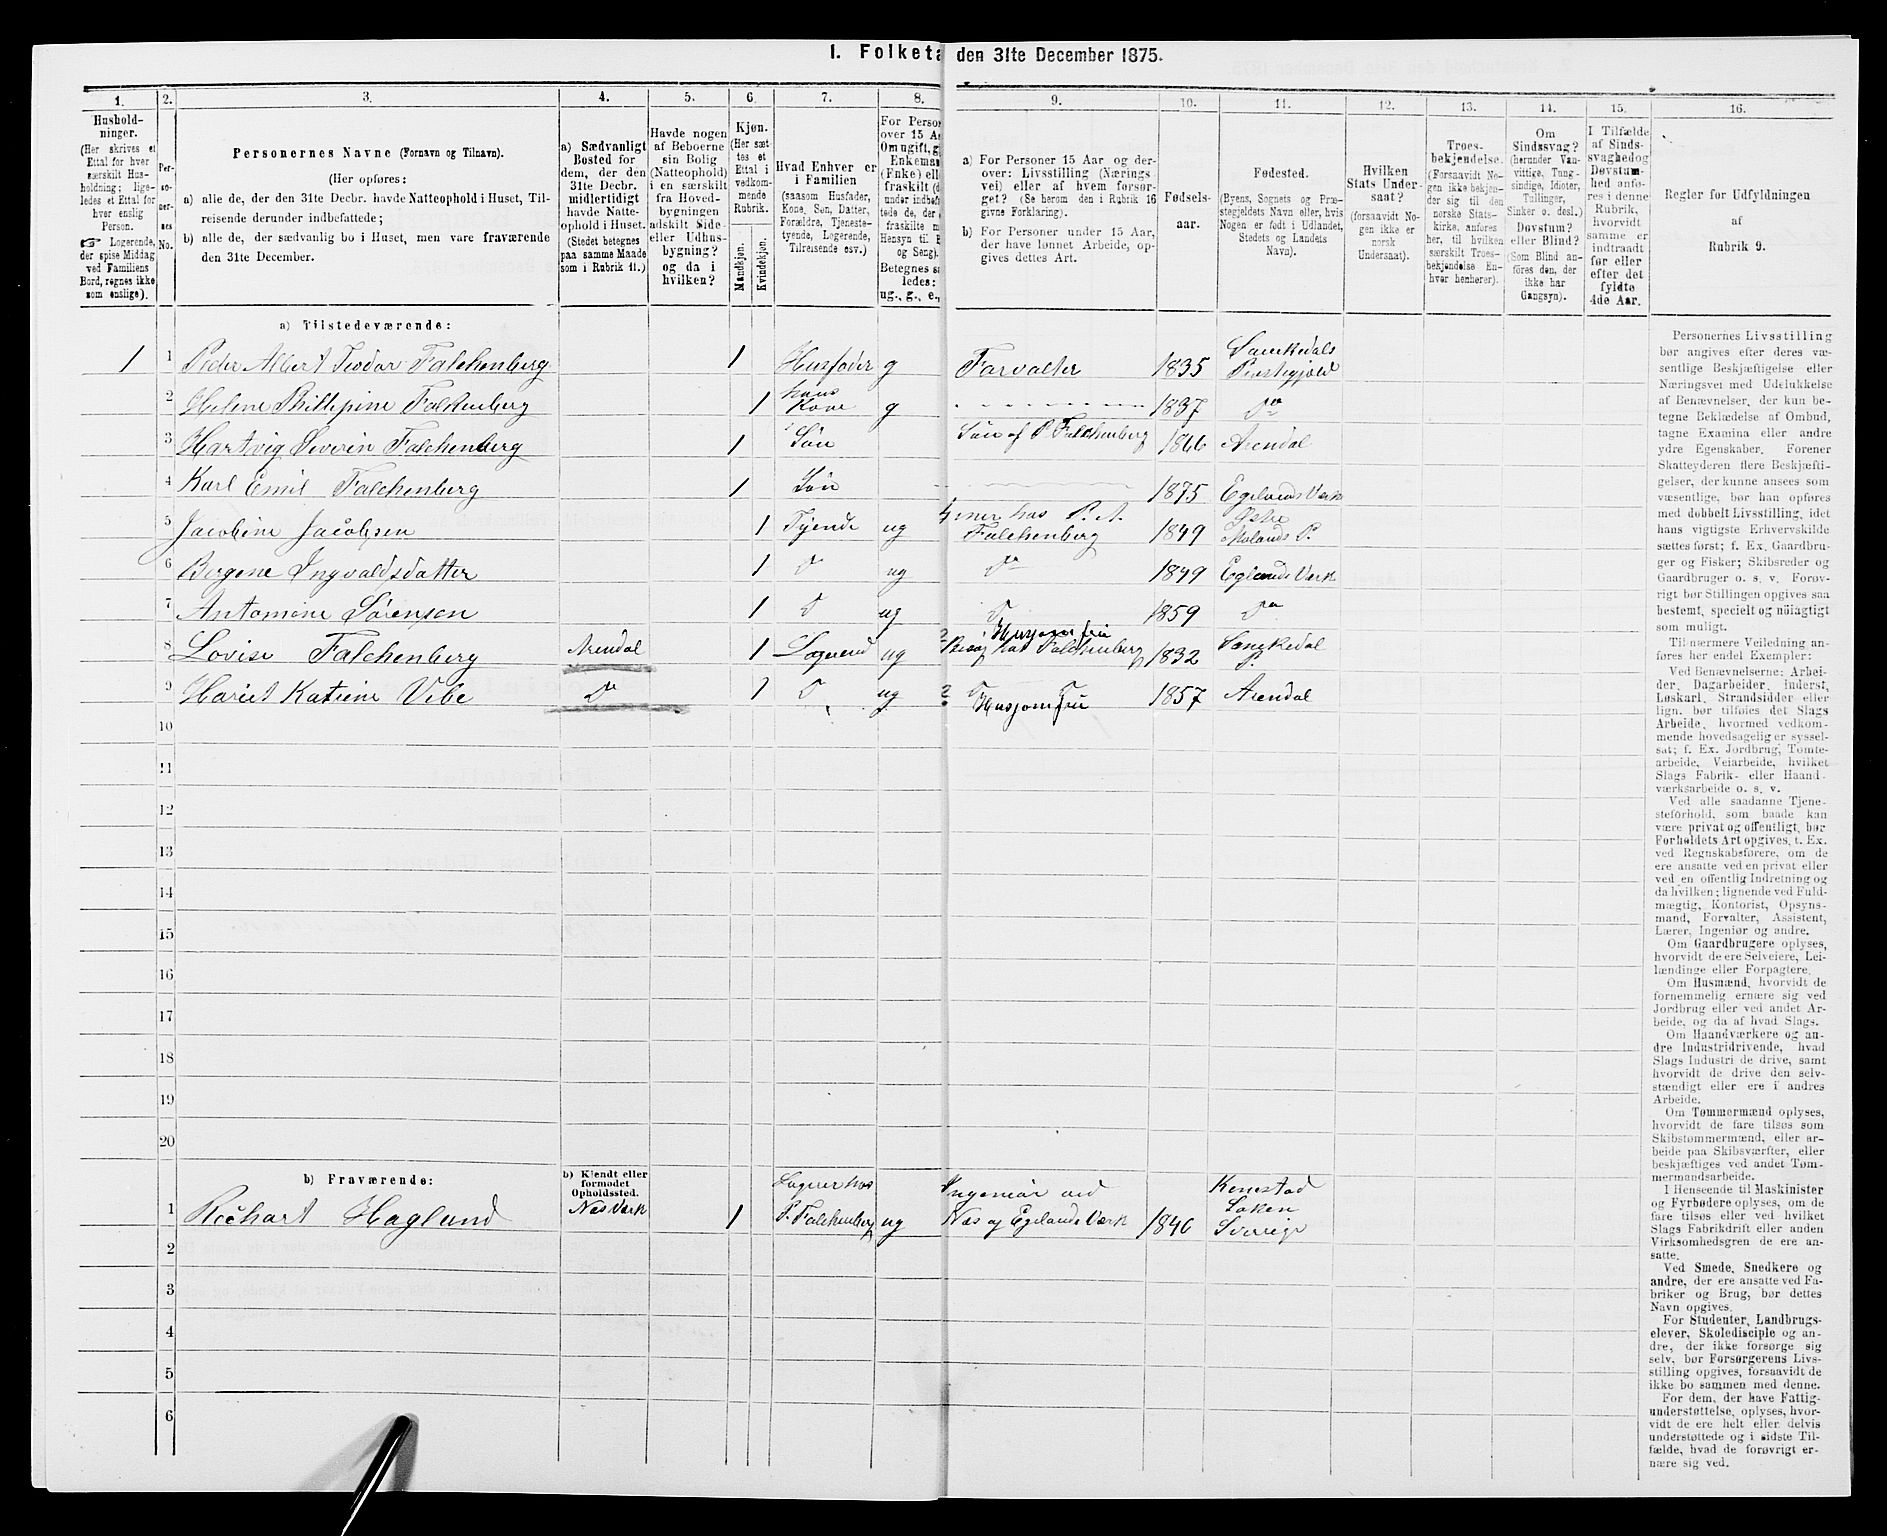 1. Folketa den 31te December 1875.
1. 2. 3. 4. 5. 6. 7. 8. 9. 10. 11. 12. 13. 14. 15. 16.
Hushold-
ninger.
(Her skrives et
Ettal for hver
særskilt Hus-
holdning; lige-
ledes et Ettal for
hver enslig
Person.
☞ Logerende,
der spise Middag
ved Familiens
Bord, regnes ikke
som enslige).
Per-
so-
ner-
nes
No.
Personernes Navne (Fornavn og Tilnavn).
(Her opføres:
a) alle de, der den 31te Decbr. havde Natteophold i Huset, Til-
reisende derunder indbefattede;
b) alle de, der sædvanlig bo i Huset, men vare fraværende
den 31te December.
a) Sædvanligt
Bosted for
dem, der den
31te Decbr.
midlertidigt
havde Natte-
ophold i Huset.
(Stedet betegnes
paa samme Maade
som i Rubrik 11.)
Havde nogen
af Beboerne
sin Bolig
(Natteophold)
i en særskilt
fra Hoved-
bygningen
adskilt Side-
eller Udhus-
bygning?
og da i
hvilken?
Kjøn.
(Her sæt
tes et
Ettal i
vedkom-
mende
Rubrik.
Mandkjøn.
Kvindekjøn.
Hvad Enhver er
i Familien
(saasom Husfader,
Kone, Søn, Datter,
Forældre, Tjeneste-
tyende, Logerende,
Tilreisende osv.)
For Person
over 15 A
Om ugift, g
Enkema
(Enke) ell
fraskilt (d
under indbef
tede de, der
fraskilte m
Hensyn til B
og Seng).
Betegnes s
ledes:
ug., g., e.,
a) For Personer 15 Aar og der-
over: Livsstilling (Nærings-
vei) eller af hvem forsør-
get? (Se herom den i Rubrik 16
givne Forklaring).
b) For Personer under 15 Aar,
der have lønnet Arbeide, op-
gives dettes Art.
Fødsels-
aar.
Fødested.
(Byens, Sognets og Præ-
stegjeldets Navn eller, hvis
Nogen er født i Udlandet,
Stedets og Landets
Navn).
Hvilken
Stats Under-
saat?
(forsaavidt No-
gen ikke er
norsk
Undersaat).
Troes-
bekjendelse.
(Forsaavidt No-
gen ikke bekjen-
der sig til den
norske Stats-
kirke, anføres
her, til hvilken
særskilt Troes-
bekjendelse En-
hver henhører).
Om
Sindssvag?
(herunder Van-
vittige, Tung-
sindige, Idioter,
Tullinger,
Sinker o. desl.)
Døvstum?
eller Blind?
(Som Blind an-
føres den, der
ikke har
Gangsyn).
I Tilfælde
af Sinds-
svaghed og
Døvstum-
hed anfø-
res i denne
Rubrik,
hvorvidt
samme er
indtraadt
før eller
efter det
fyldte
4de Aar.
Regler for Udfyldningen
af
Rubrik 9.
a) Tilstedeværende:
1 1 Peder Albert Teodor Falchenberg 1 Husfader g Forvalter 1835 Sanekedals Prestegjeld
2 Helene Phillipine Falkenberg 1 hans Kone g 1837 Do
3 Hartvig Severin Falchenberg 1 Søn Søn af P Falchenberg 1866 Arendal
4 Karl Emil Falchenberg 1 Søn 1875 Egelands Værk
5 Jacobine Jacobsen 1 Tjende ug hos P. A. Falchenberg 1849 Østre Molands P.
6 Bergene Ingvaldsdatter 1 Do ug Do 1849 Eglands Værk
7 Antomine Sørensen 1 D ug D 1859 Do
8 Lovise Falchenberg Arendal 1 Logerend ug Husjomfru Besøg hos Falchenberg 1832 Sanekedal P.
9 Hariet Katrine Vibe Do 1 D ug Husjomfru 1857 Arendal
10
11
12
13
14
15
16
17
18
19
20
b) Fraværende:
b) Kjendt eller
formodet
Opholdssted.
1 Rechart Haglund Næs Værk 1 Logerer hos P. Falchenberg ug Ingeniør ved Næs og Egelands Værk 1846 Sverige
2
3
4
5
6
Personernes Livsstilling
bør angives efter deres væ-
sentlige Beskjæftigelse eller
Næringsvei med Udelukkelse
af Benævnelser, der kun be-
tegne Beklædelse af Ombud,
tagne Examina eller andre
ydre Egenskaber. Forener
Skatteyderen flere Beskjæfti-
gelser, der kunne ansees som
væsentlige, bør han opføres
med dobbelt Livsstilling, idet
hans vigtigste Erhvervskilde
sættes først; f. Ex. Gaardbru-
ger og Fisker; Skibsreder og
Gaardbruger o. s. v. Forøv-
rigt bør Stillingen opgives saa
bestemt, specielt og nøiagtigt
som muligt.
Til nærmere Veiledning an-
føres her endel Exempler:
Ved Benævnelserne: Arbei-
der, Dagarbeider, Inderst,
Løskarl, Strandsidder eller
lign. bør tilføies det Slags
Arbeide, hvormed vedkom-
mende hovedsagelig er syssel-
sat; f. Ex. Jordbrug, Tomte-
arbeide, Veiarbeide, hvilket
Slags Fabrik- eller Haand-
værksarbeide o. s. v.
Ved alle saadanne Tjene-
steforhold, som baade kan
være privat og offentligt, bør
Forholdets Art opgives, t. Ex.
ved Regnskabsførere, om de
ere ansatte ved en privat eller
ved en offentlig Indretning og
da hvilken; lignende ved Fuld-
mægtig, Kontorist, Opsyns-
mand, Forvalter, Assistent,
Lærer, Ingeniør og andre.
Om Gaardbrugere oplyses,
hvorvidt de ere Selveiere, Lei-
lændinge eller Forpagtere.
Om Husmænd, hvorvidt de
fornemmelig ernære sig ved
Jordbrug eller ved andet Ar-
beide, og da af hvad Slags.
Om Haandværkere og an-
dre Industridrivende, hvad
Slags Industri de drive, samt
hvorvidt de drive den selv-
stændigt eller ere i andres
Arbeide.
Om Tømmermænd oplyses,
hvorvidt de fare tilsøs som
Skibstømmermænd, eller ar-
beide paa Skibsværfter, eller
beskjæftiges ved andet Tøm-
mermandsarbeide.
I Henseende til Maskinister
og Fyrbødere oplyses, om de
fare tilsøs eller ved hvilket
Slags Fabrikdrift eller anden
Virksomhedsgren de ere an-
satte.
Ved Smede, Snedkere og
andre, der ere ansatte ved Fa-
briker og Brug, bør dettes
Navn opgives.
For Studenter, Landbrugs-
elever, Skoledisciple og an-
dre, der ikke forsørge sig
selv, bør Forsørgerens Livs-
stilling opgives, forsaavidt de
ikke bo sammen med denne.
For dem, der have Fattig-
understøttelse, oplyses, hvor-
vidt de ere helt eller delvis
understøttede og i sidste Til-
fælde, hvad de forøvrigt er-
nære sig ved.